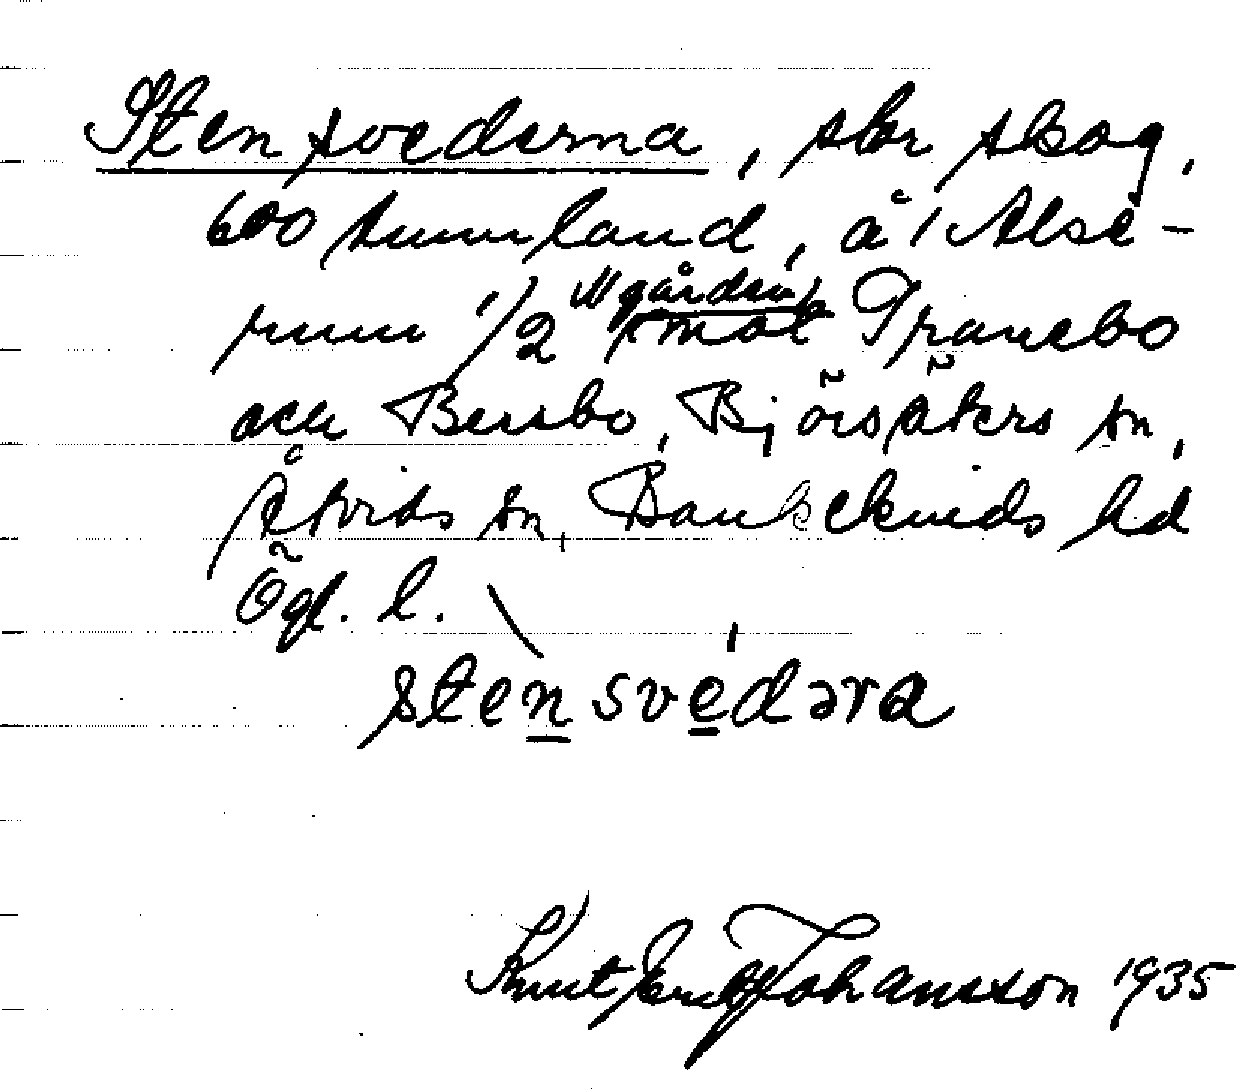 Stensvederna, stor skog,
600 tunnland, å Alse-
rum 1/2 gårdrå mot Tranebo
och Bersbo, Björsäters sn,
Åtvids sn, Bankekinds hd
Ögl. l.
stensvedəra
Knut Erik Johansson 1935